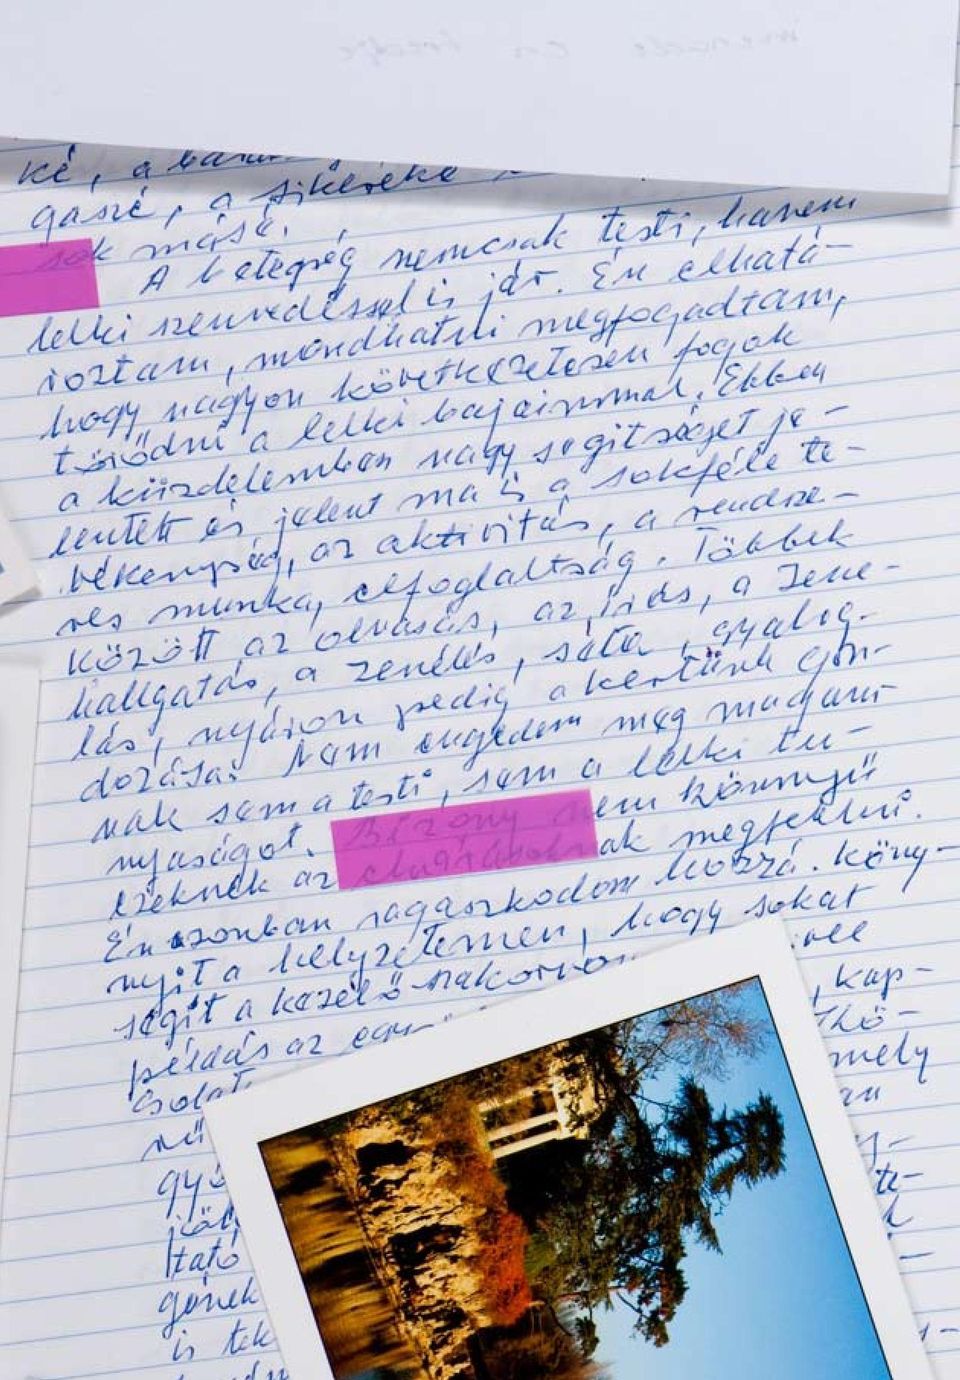 ké, a
gaszé, a sikereké
sok másé.
A betegség nemcsak testi, hanem
lelki szenvedéssel is jár. Én elhatá-
roztam, mondhatni megfogadtam,
hogy nagyon következetesen fogok
törődni a lelki bajaimmal. Ebben
a küzdelemben nagy segítséget je-
lentett és jelent ma is a sokféle te-
vékenység, az aktivitás, a rendsze-
res munka, elfoglaltság. Többek
között az olvasás, az írás, a zene-
hallgatás, a zenélés, séta, gyalog-
lás, nyáron pedig a kertünk gon-
dozása. Nem engedem meg magam-
nak sem a testi, sem a lelki tu-
nyaságot. Bizony nem könnyű
ezeknek az elvárásoknak megfelelni.
Én azonban ragaszkodom hozzá. Köny-
nyít a helyzetemen, hogy sokat
segít a kezelő szakorvos
példás az
, kap-
csolat
mely
gyó
ltató
gének
is tek